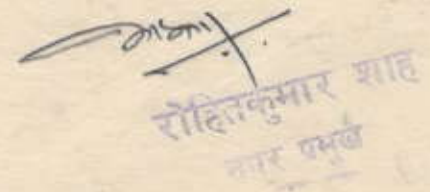 रोहितकुमार शाह
नगर प्रमुख